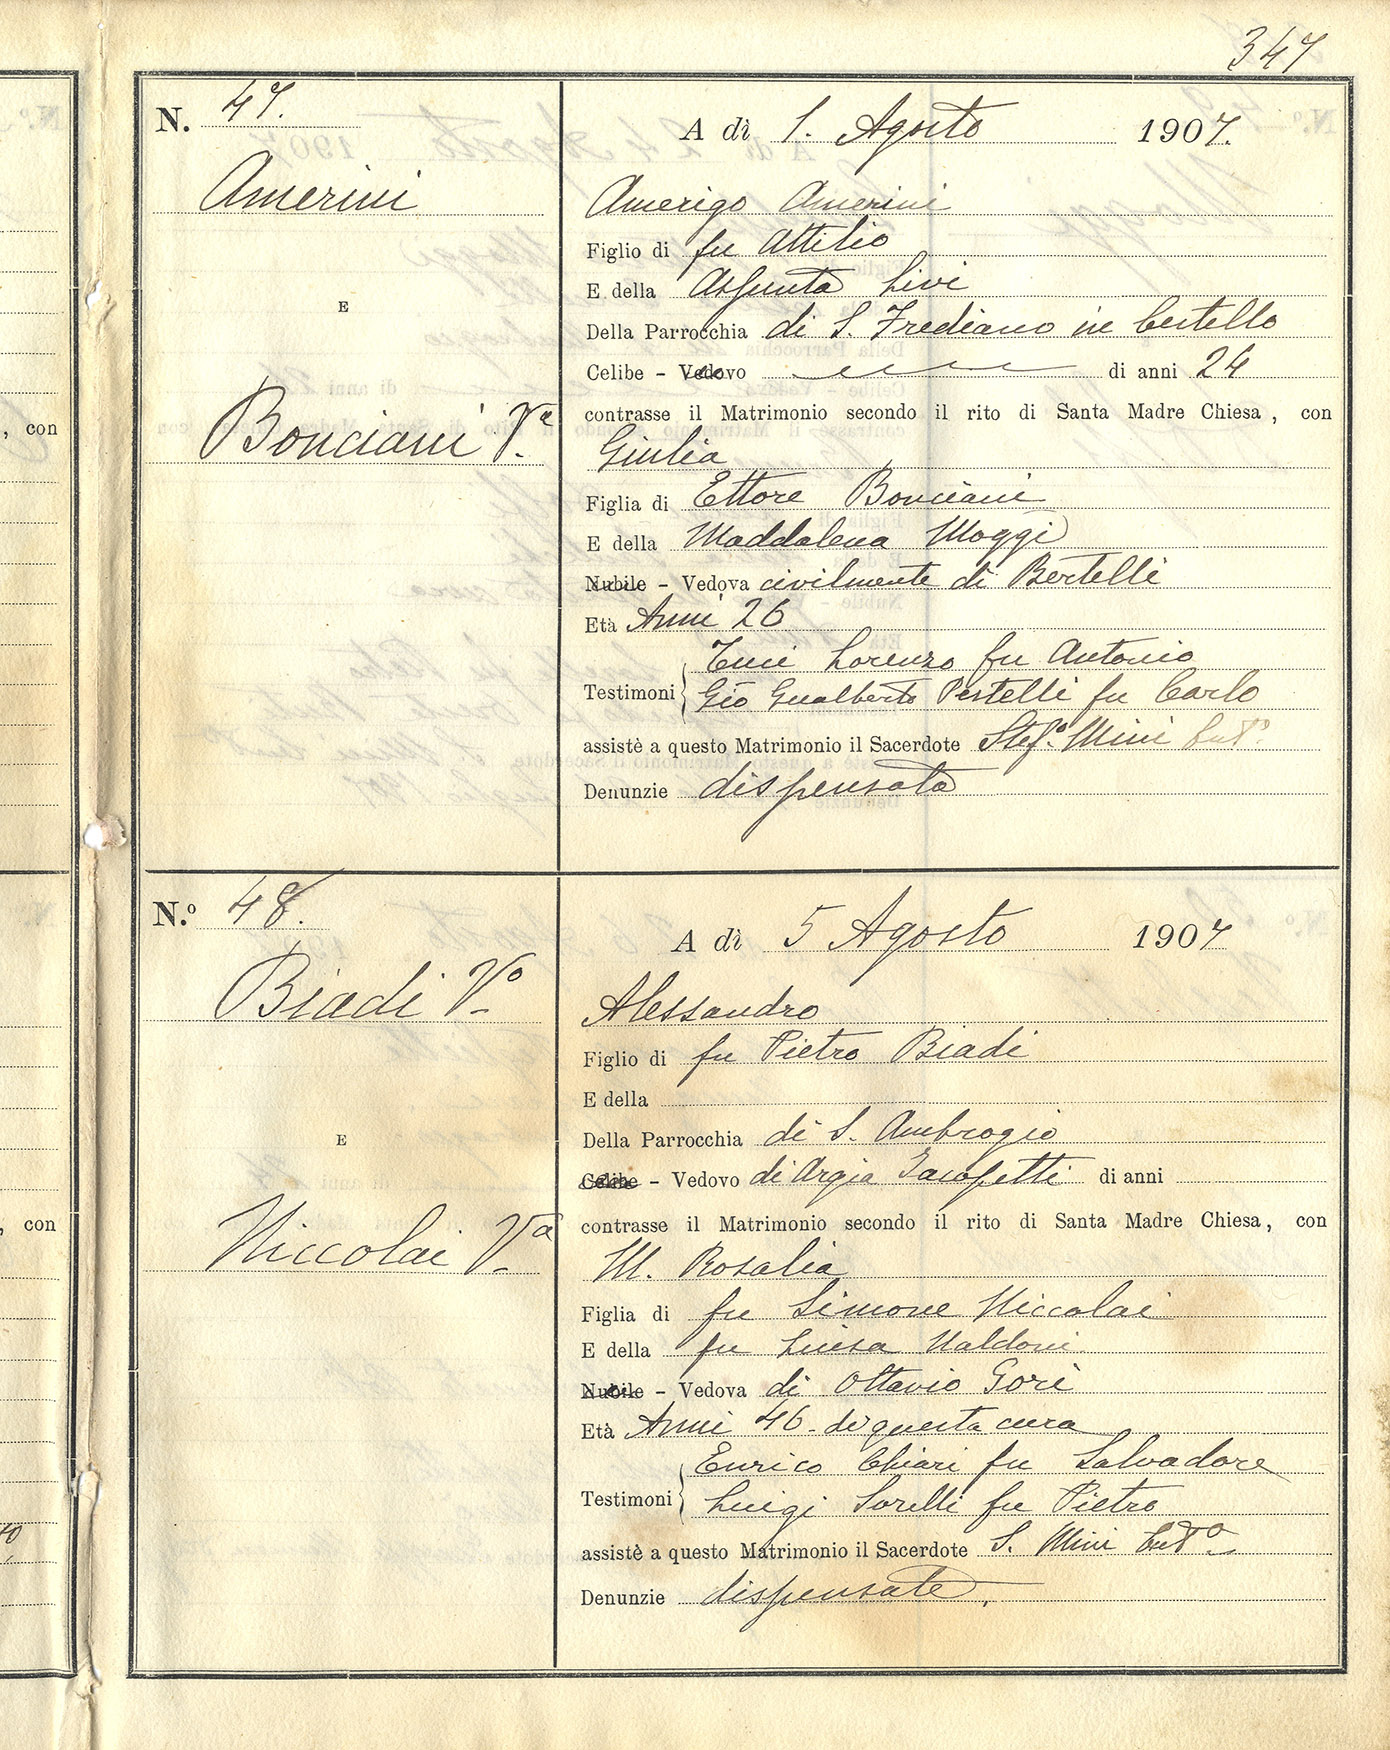 347
N. 47.
Amerini
E
Bonciani Va.
A dì 1. Agosto 1907.
Amerigo Amerini
Figlio di fu Attilio
E della Assunta Livi
Della Parrocchia di S. Frediano in Cestello
Celibe - Vedovo di anni 24
contrasse il Matrimonio secondo il rito di Santa Madre Chiesa, con
Giulia
Figlia di Ettore Bonciani
E della Maddalena Moggi
Nubile - Vedova civilmente di Bertelli
Età Anni 26
Tuci Lorenzo fu Antonio
Testimoni
Gio Gualberto Pestelli fu Carlo
assistè a questo Matrimonio il Sacerdote Stef.o Mini
Denunzie dispensata
N.o 48.
Biadi Vo.
E
Niccolai Va.
A dì 5 Agosto 1907
Alessandro
Figlio di fu Pietro Biadi
E della
Della Parrocchia di S. Ambrogio
Celibe - Vedovo di Argia Iacopetti di anni
contrasse il Matrimonio secondo il rito di Santa Madre Chiesa, con
M. Rosalia
Figlia di fu Simone Niccolai
E della fu Luisa Naldoni
Nubile - Vedova di Ottavio Gori
Età Anni 46 - di questa cura
Enrico Chiari fu Salvadore
Testimoni
Luigi Sorelli fu Pietro
assistè a questo Matrimonio il Sacerdote S. Mini
Denunzie dispensate.
, con
, con